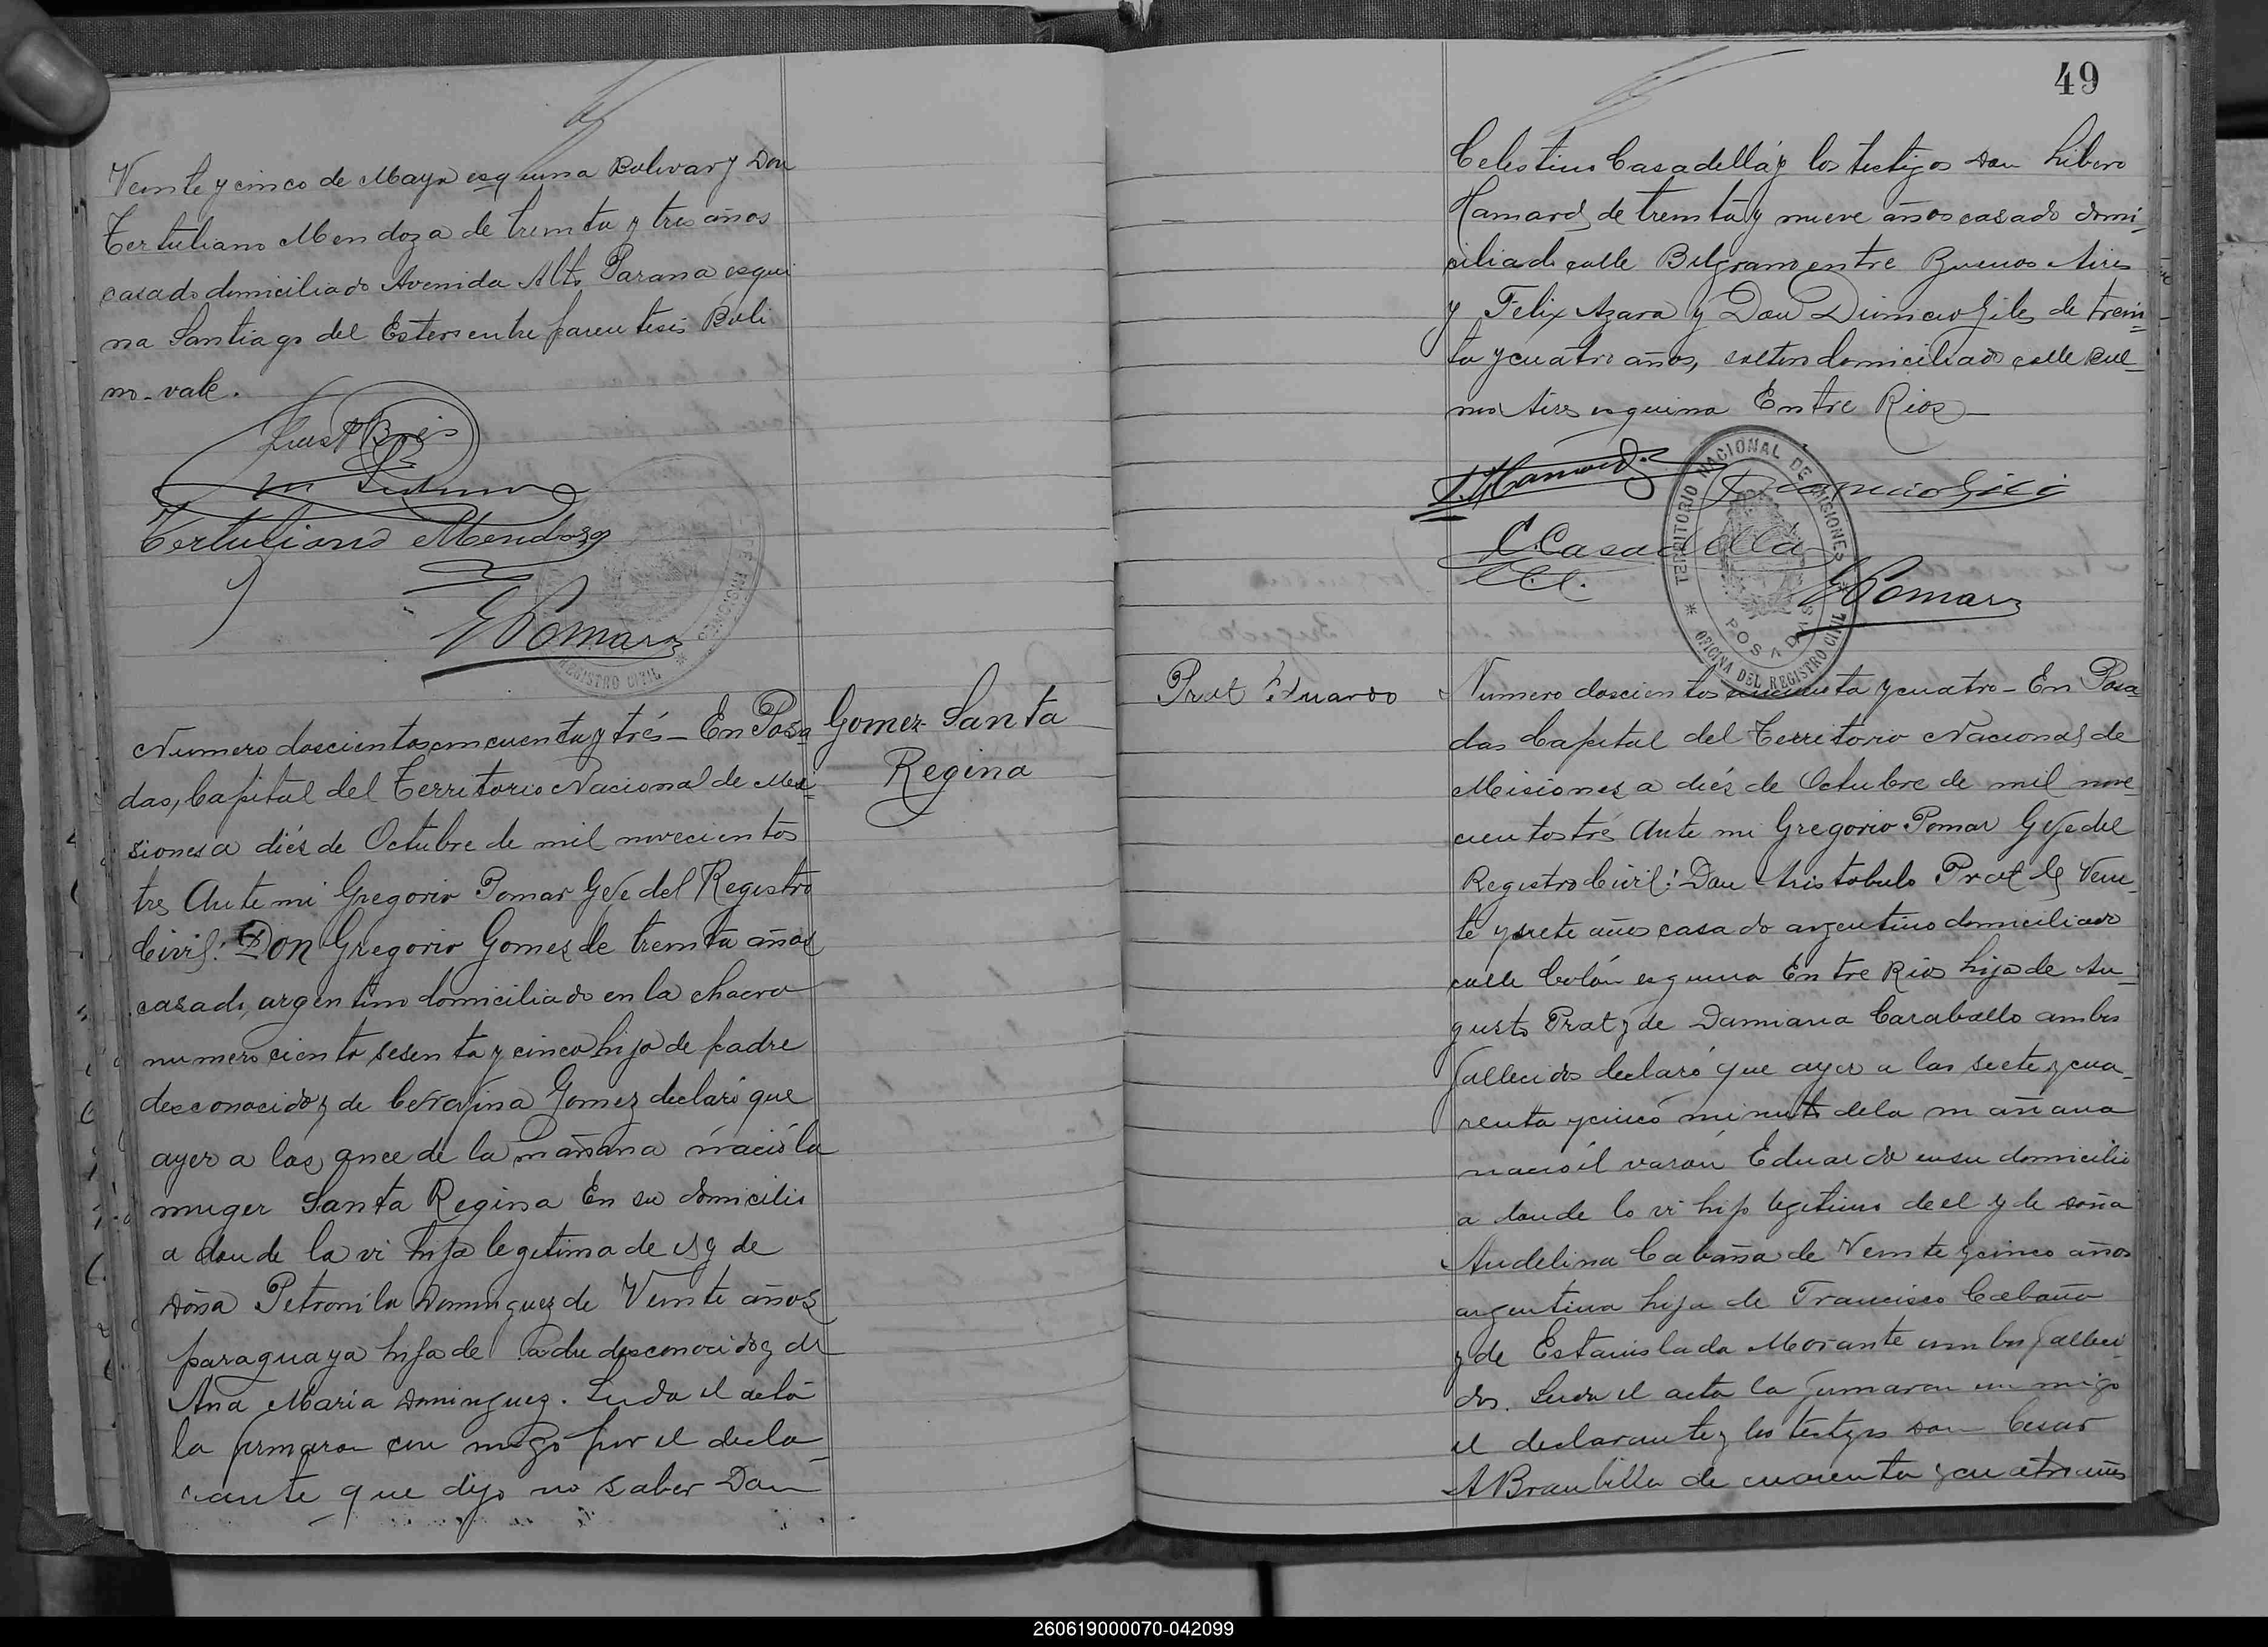 Veinte y cinco de Mayo esquina Bolivar y Don
Tertuliano Mendoza de treinta y tres años
casado domiciliado Avenida Alto Parana esqui
na Santiago del Estero entre parentesis Boli
no vale.
Tertuliano Mendoza
G Pomar
REGISTRO CIVIL
Gomez Santa
Regina
Numero doscientos cincuenta y trés - En Posa
das, Capital del Territorio Nacional de Mi
siones a diés de Octubre de mil novecientos
tres Ante mi Gregorio Pomar Gefe del Registro
Civil: Don Gregorio Gomez de treinta años
casado, argentino domiciliado en la chacra
numero ciento sesenta y cinco hijo de padre
desconocido y de Ceferina Gomez declaró que
ayer a las once de la mañana nació la
muger Santa Regina En su domicilio
a donde la vi hija legitima de el y de
doña Petronila Dominguez de Veinte años
paraguaya hija de padre desconocido y de
Ana Maria Dominguez. Leida el acta
la firmaron con migo por el decla
rante que dijo no saber Don
49
Celestino Casadellá y los testigos Don Libero
Hamard, de treinta y nueve años casado domi
ciliado calle Belgrano entre Buenos Aires
y Felix Azara y Don Dionicio Giles de trein
ta y cuatro años, soltero domiciliado calle Bue
nos Aires esquina Entre Rios
L. Hamard
Dionicio Gili
C. Casadellá
G Pomar
TERRITORIO NACIONAL DE MISIONES
POSADAS
OFICINA DEL REGISTRO CIVIL
Prat Eduardo
Numero doscientos cincuenta y cuatro - En Posa
das Capital del Territorio Nacional de
Misiones a diés de Octubre de mil nove
cientos trés Ante mi Gregorio Pomar Gefe del
Registro Civil: Don Aristobulo Prat de Vein
te y siete años casado argentino domiciliado
calle Colón esquina Entre Rios hijo de Au
gusto Prat y de Damiana Caraballo ambos
fallecidos declaró que ayer a las siete y cua
renta y cinco minutos de la mañana
nació el varón Eduardo en su domicilio
a donde lo vi hijo legitimo de el y de doña
Audelina Cabaña de Veinte y cinco años
argentina hija de Francisco Cabaña
y de Estanislada Morante ambos falleci
dos. Leida el acta la firmaron con migo
el declarante y los testigos Don Cesar
A Brambilla de cuarenta y cuatro años
260619000070-042099